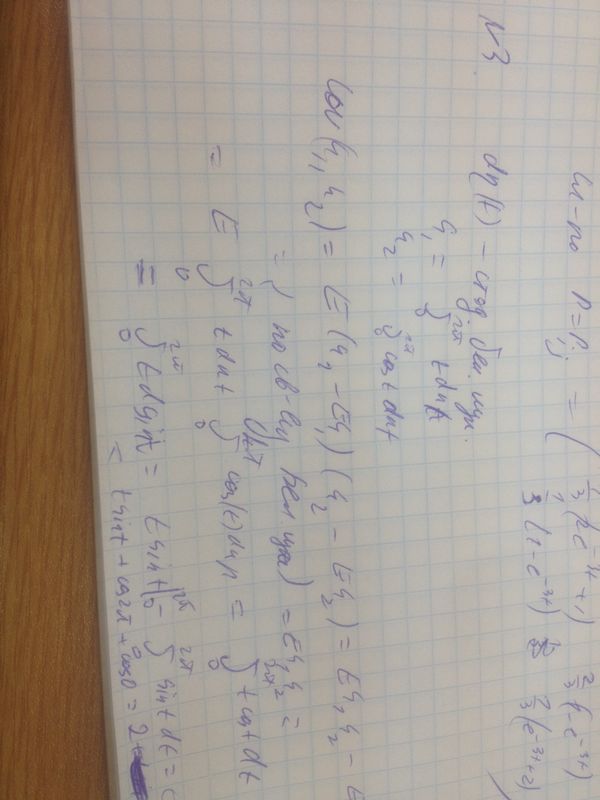 P = P_ij = ( 1/3(2e^-3t + 1) 2/3(1 - e^-3t)
1/3(1 - e^-3t) 2/3(e^-3t + 2)
N3. dη(t) - станд. бел. шум.
ξ₁ = ∫₀^2π t dηt
ξ₂ = ∫₀^2π cos t dηt
Cov(ξ₁, ξ₂) = E(ξ₁ - Eξ₁)(ξ₂ - Eξ₂) = Eξ₁ξ₂ - E
= { по св-ву бел шума } = Eξ₁ξ₂ =
= E ∫₀^2π t dηt ∫₀^2π cos(t) dηt = ∫₀^2π t cos t dt
= ∫₀^2π t d sin t = t sin t |₀^2π - ∫₀^2π sin t dt =
= t sin t + cos 2π + cos 0 = 2